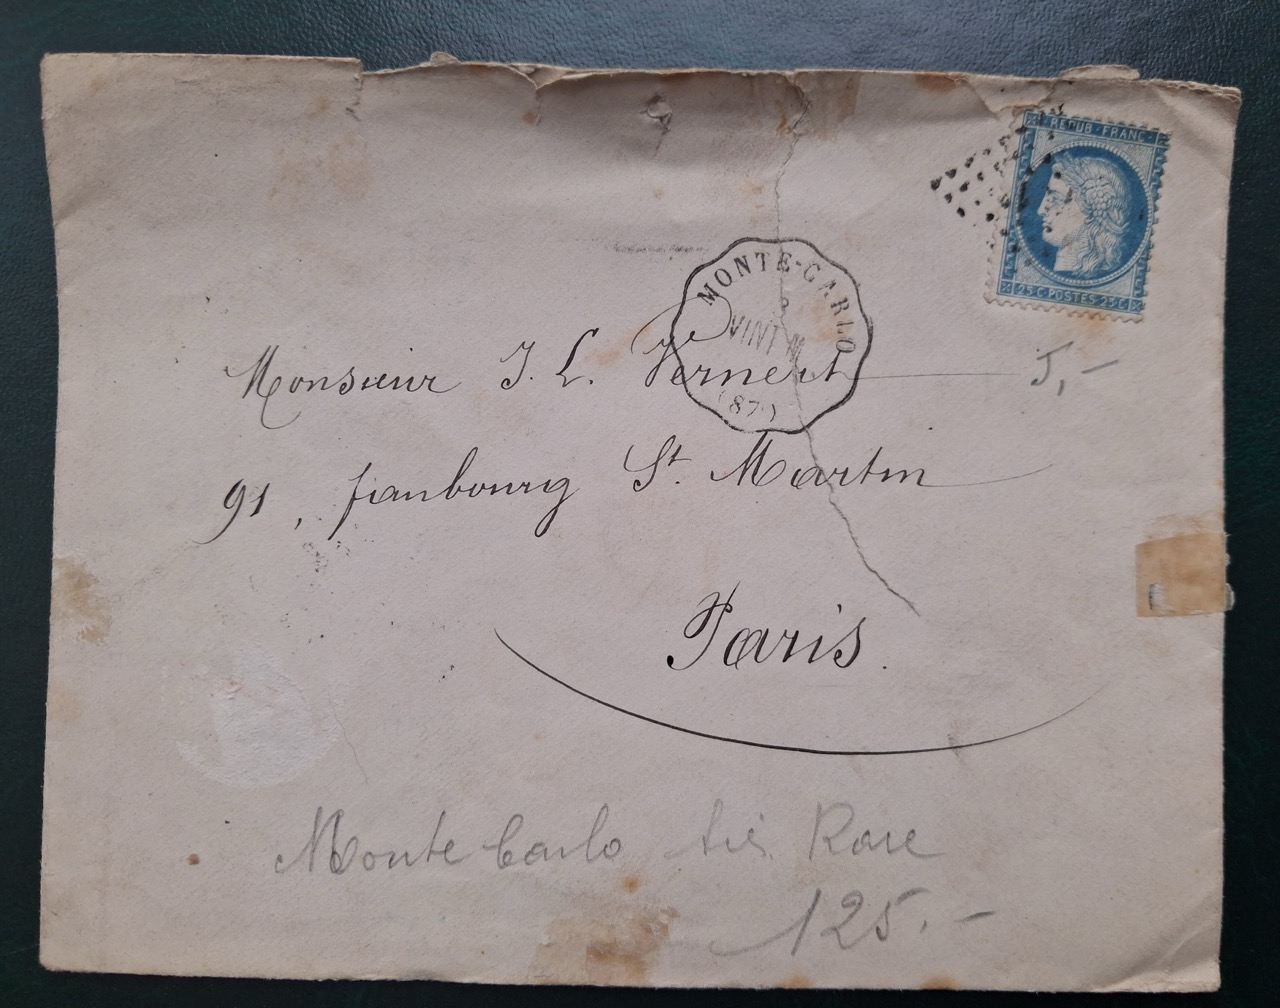 REPUB·FRANC·
25 C·POSTES 25 C
MONTE-CARLO
2
VINTM
(87)
Monsieur J. L. Vernert
5,-
91, faubourg St. Martin
Paris.
Monte Carlo très Rare
125.-